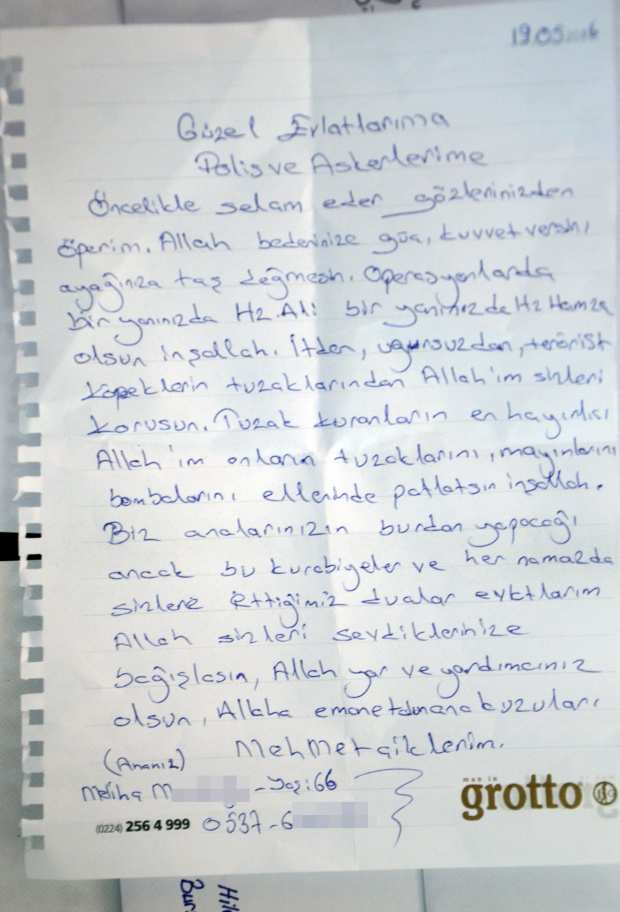 19.05
Güzel Evlatlarıma
Polis ve Askerlerime
Öncelikle selam eder gözlerinizden
öperim. Allah bedeninize güç, kuvvet versin,
ayağınıza taş değmesin. Operasyonlarda
bir yanınızda Hz. Ali bir yanınızda Hz Hamza
olsun inşallah. İtden, uğursuzdan, terörist
köpeklerin tuzaklarından Allah'ım sizleri
korusun. Tuzak kuranların en hayırlısı
Allah'ım onların tuzaklarını, mayınlarını
bombalarını ellerinde patlatsın inşallah.
Biz analarınızın burdan yapacağı
ancak bu kurabiyeler ve her namazda
sizlere ettiğimiz dualar
Allah sizleri sevdiklerinize
bağışlasın, Allah yar ve yardımcınız
olsun, Allaha emanet olun ana kuzuları
Mehmetçiklerim.
(Ananız)
Meliha M - Yaş: 66
man in
grotto
(0224) 256 4 999 0537-6